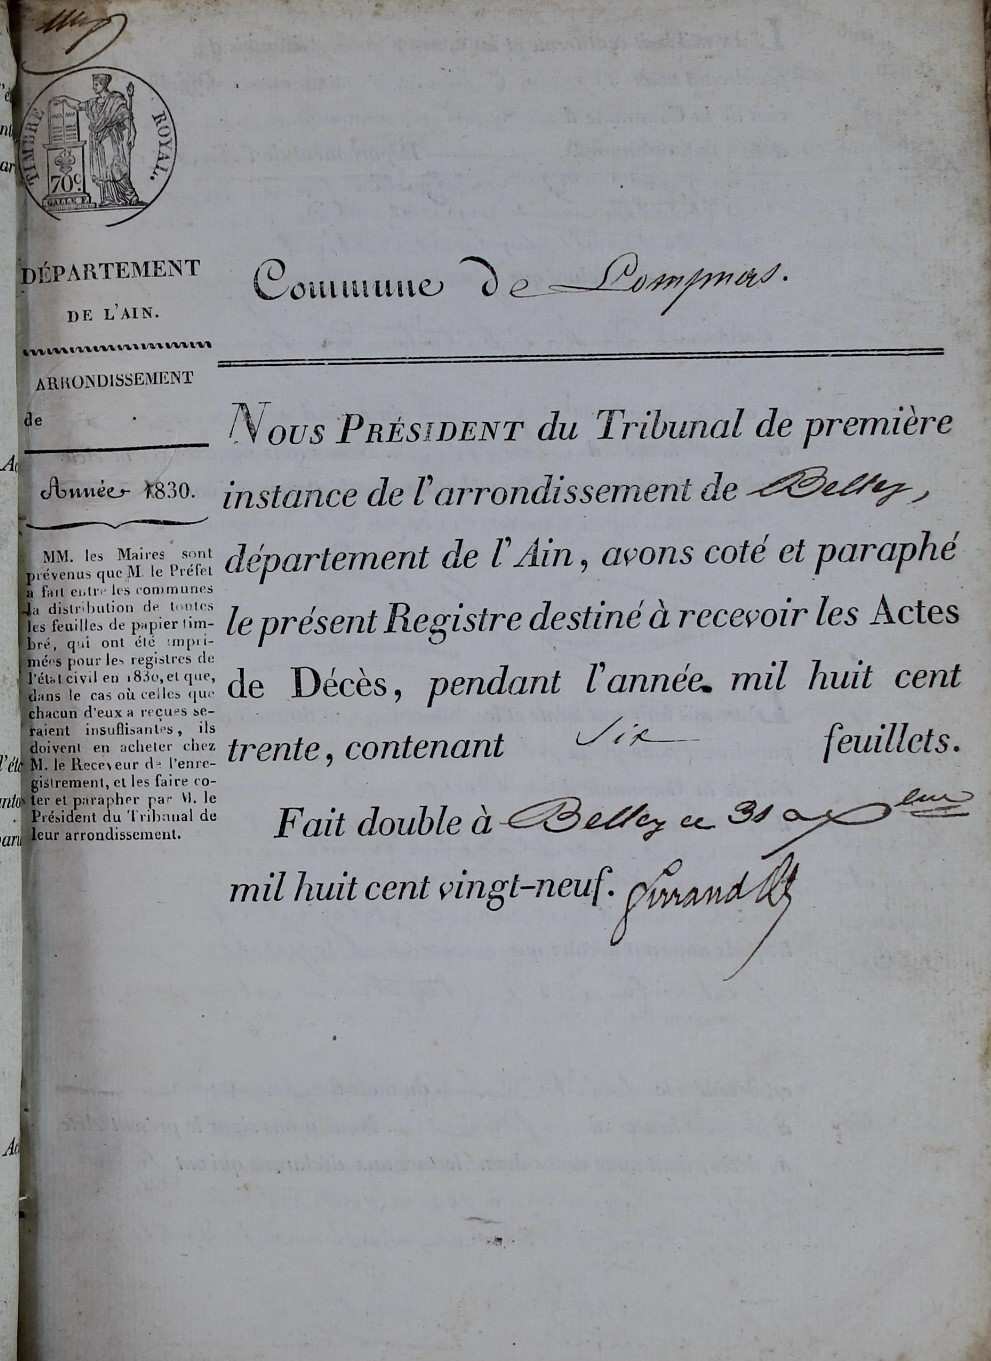 TIMBRE ROYAL.
70c
GALLE F.
DÉPARTEMENT
DE L'AIN.
Commune de Lompnas.
ARRONDISSEMENT
de
Année 1830.
MM. les Maires sont
prévenus que M. le Préfet
a fait entre les communes
la distribution de toutes
les feuilles de papier tim-
bré, qui ont été impri-
mées pour les registres de
l'état civil en 1830, et que,
dans le cas où celles que
chacun d'eux a reçues se-
raient insuffisantes, ils
doivent en acheter chez
M. le Receveur de l'enre-
gistrement, et les faire co-
ter et parapher par M. le
Président du Tribunal de
leur arrondissement.
NOUS PRÉSIDENT du Tribunal de première
instance de l'arrondissement de Belley,
département de l'Ain, avons coté et paraphé
le présent Registre destiné à recevoir les Actes
de Décès, pendant l'année mil huit cent
trente, contenant Six feuillets.
Fait double à Belley ce 31
mil huit cent vingt-neuf.